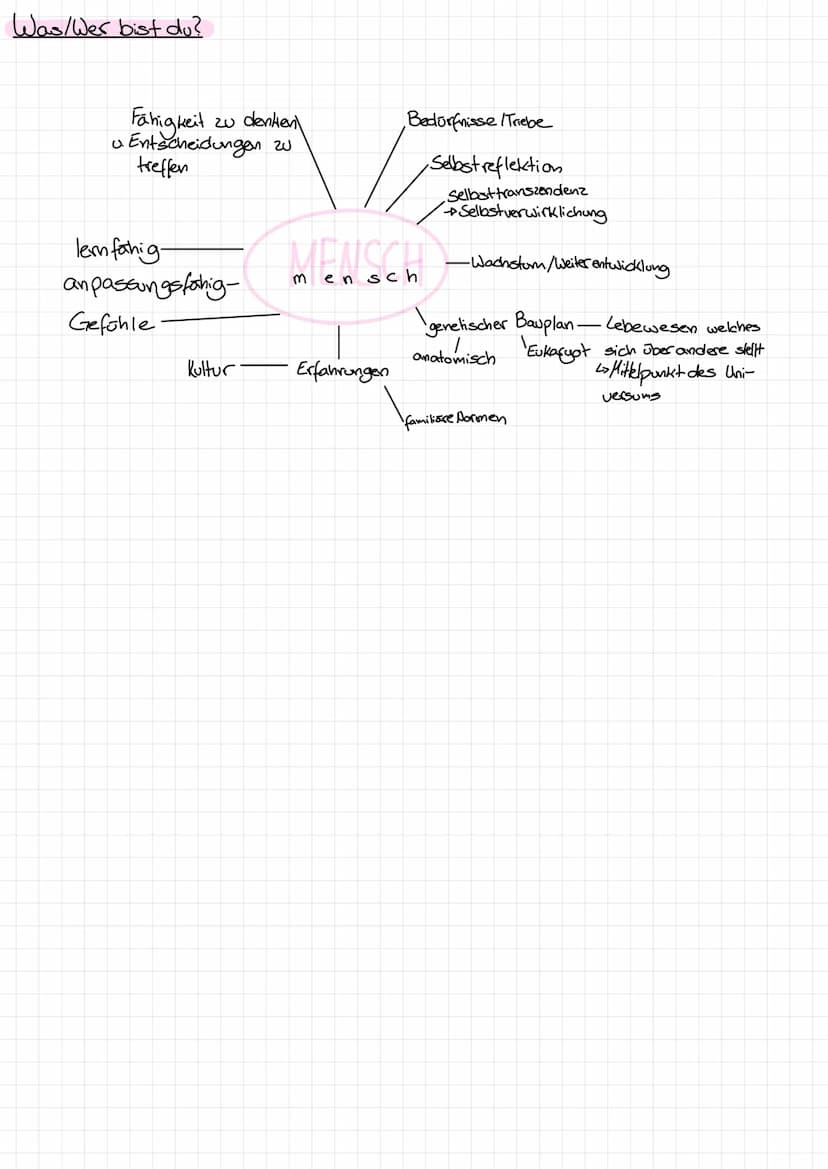 Was/Wer bist du?
Fähigkeit zu denken
u. Entscheidungen zu
treffen
Bedürfnisse/Triebe
Selbstreflektion
Selbsttranszendenz
→ Selbstverwirklichung
MENSCH
mensch
lernfähig
anpassungsfähig
Gefühle
Wachstum/Weiterentwicklung
genetischer Bauplan — Lebewesen welches
anatomisch
Eukaryot
sich über andere stellt
↳ Mittelpunkt des Uni-
versums
Kultur — Erfahrungen
familiäre Normen